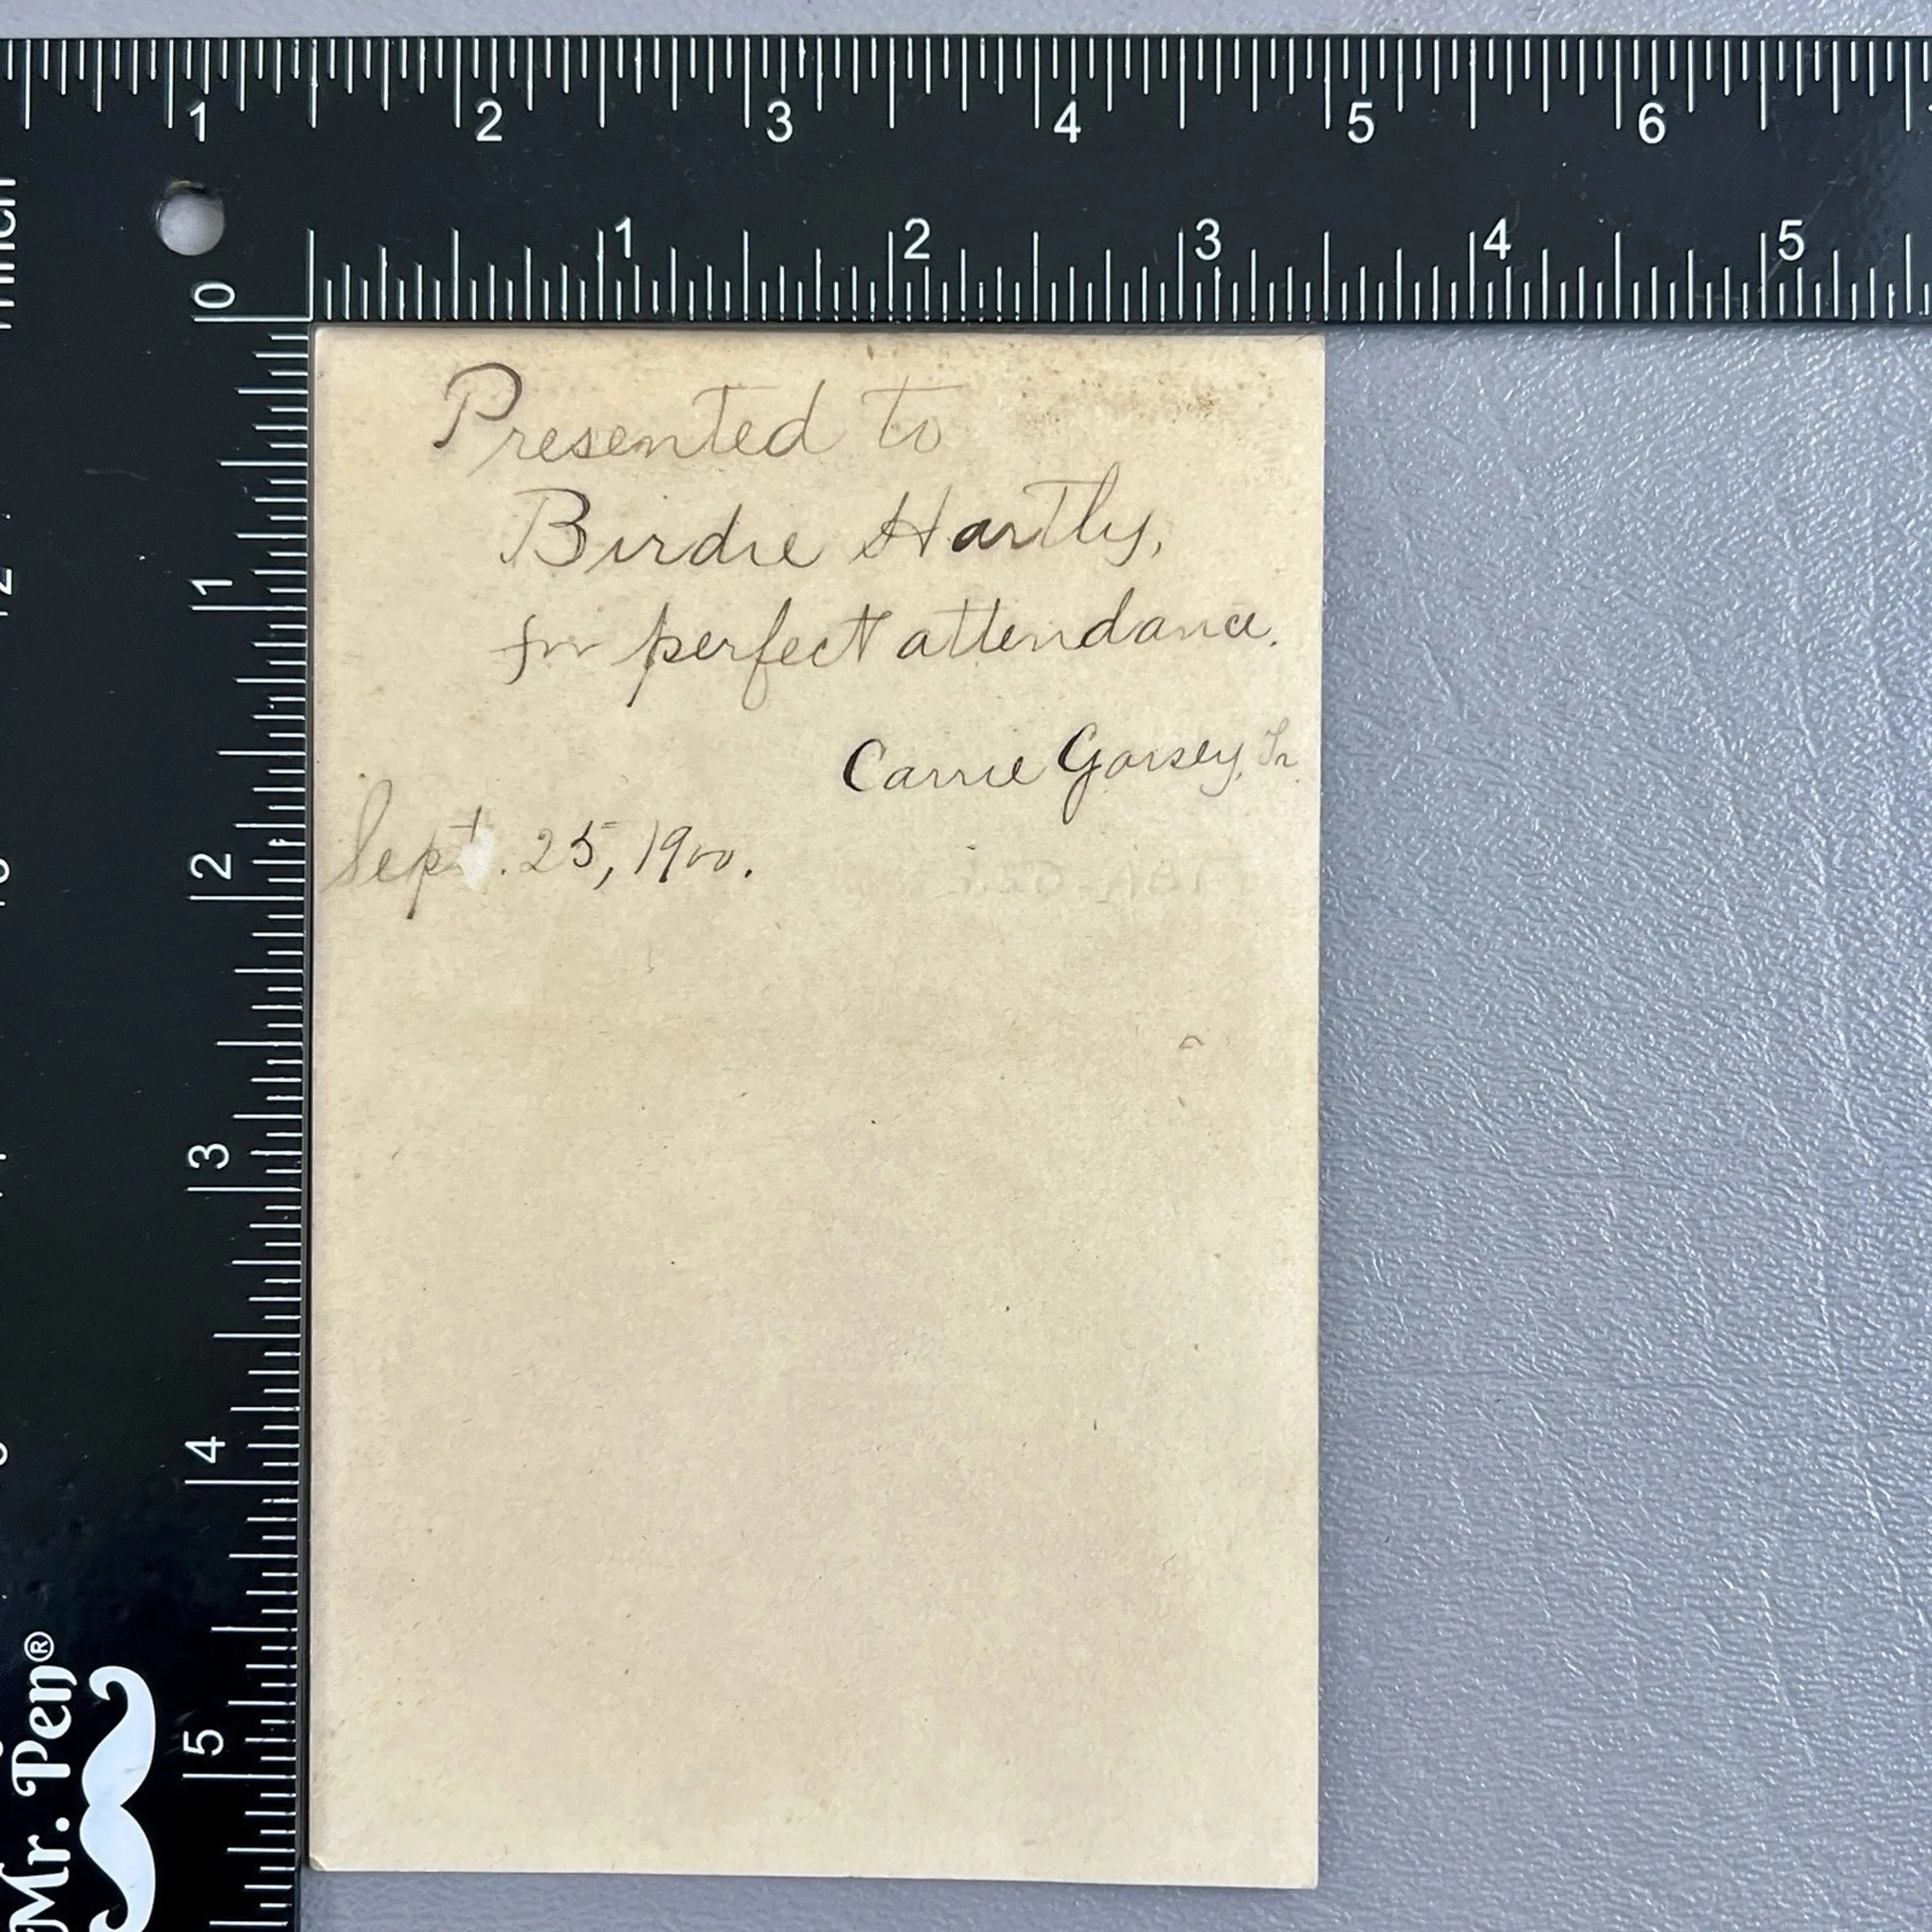 1 2 3 4 5 6
1 2 3 4 5
0
1
2
3
4
5
Mr. Pen®
Presented to
Birdie Hartly,
for perfect attendance.
Carrie Gorsey, Tr.
Sept. 25, 1900.